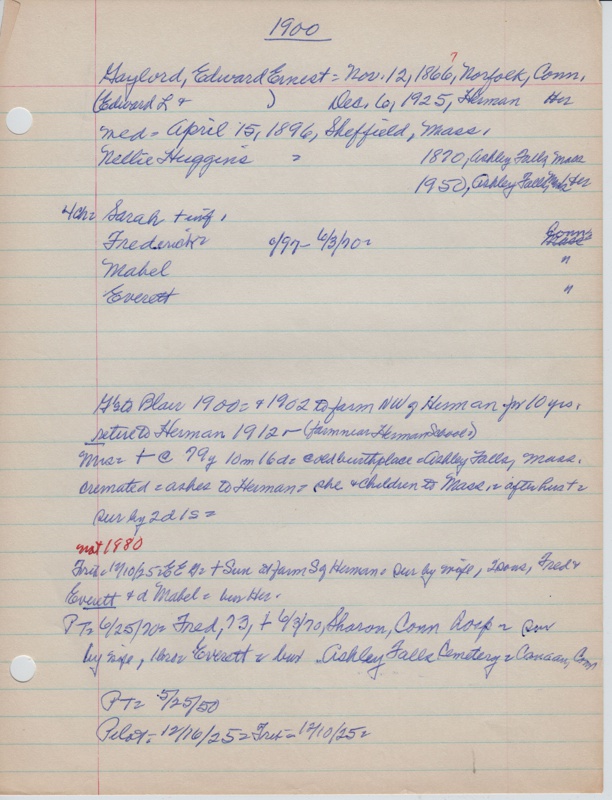 1900
?
Gaylord, Edward Ernest = Nov. 12, 1866, Norfolk, Conn.
(Edward L + ) Dec. 6, 1925, Herman Her
med = April 15, 1896, Sheffield, Mass.
Nellie Huggins = 1870, Ashley Falls, Mass
1950, Ashley Falls, Her
4 ch = Sarah + inf.
Frederick = 6/97 - 6/3/70 = Conn
Mabel "
Everett "
to Blair 1900 = + 1902 to farm NW of Herman for 10 yrs.
retire to Herman 1912 - (farm near Herman
Mrs = + @ 79y 10m 16d = birthplace = Ashley Falls, Mass.
cremated = ashes to Herman = she + children to Mass. = after hus + =
sur by 2d 1s =
not 1980
12/10/25 = E E G = + Sun at farm S of Herman = sur by wife, 2 sons, Fred +
Everett + d Mabel = bur Her.
PT = 6/25/70 = Fred, 73, + 6/3/70, Sharon, Conn Hosp = sur
by wife, 1 bro = Everett = bur Ashley Falls Cemetery = Canaan, Conn
PT = 5/25/50
Pilot = 12/16/25 = 12/10/25 =